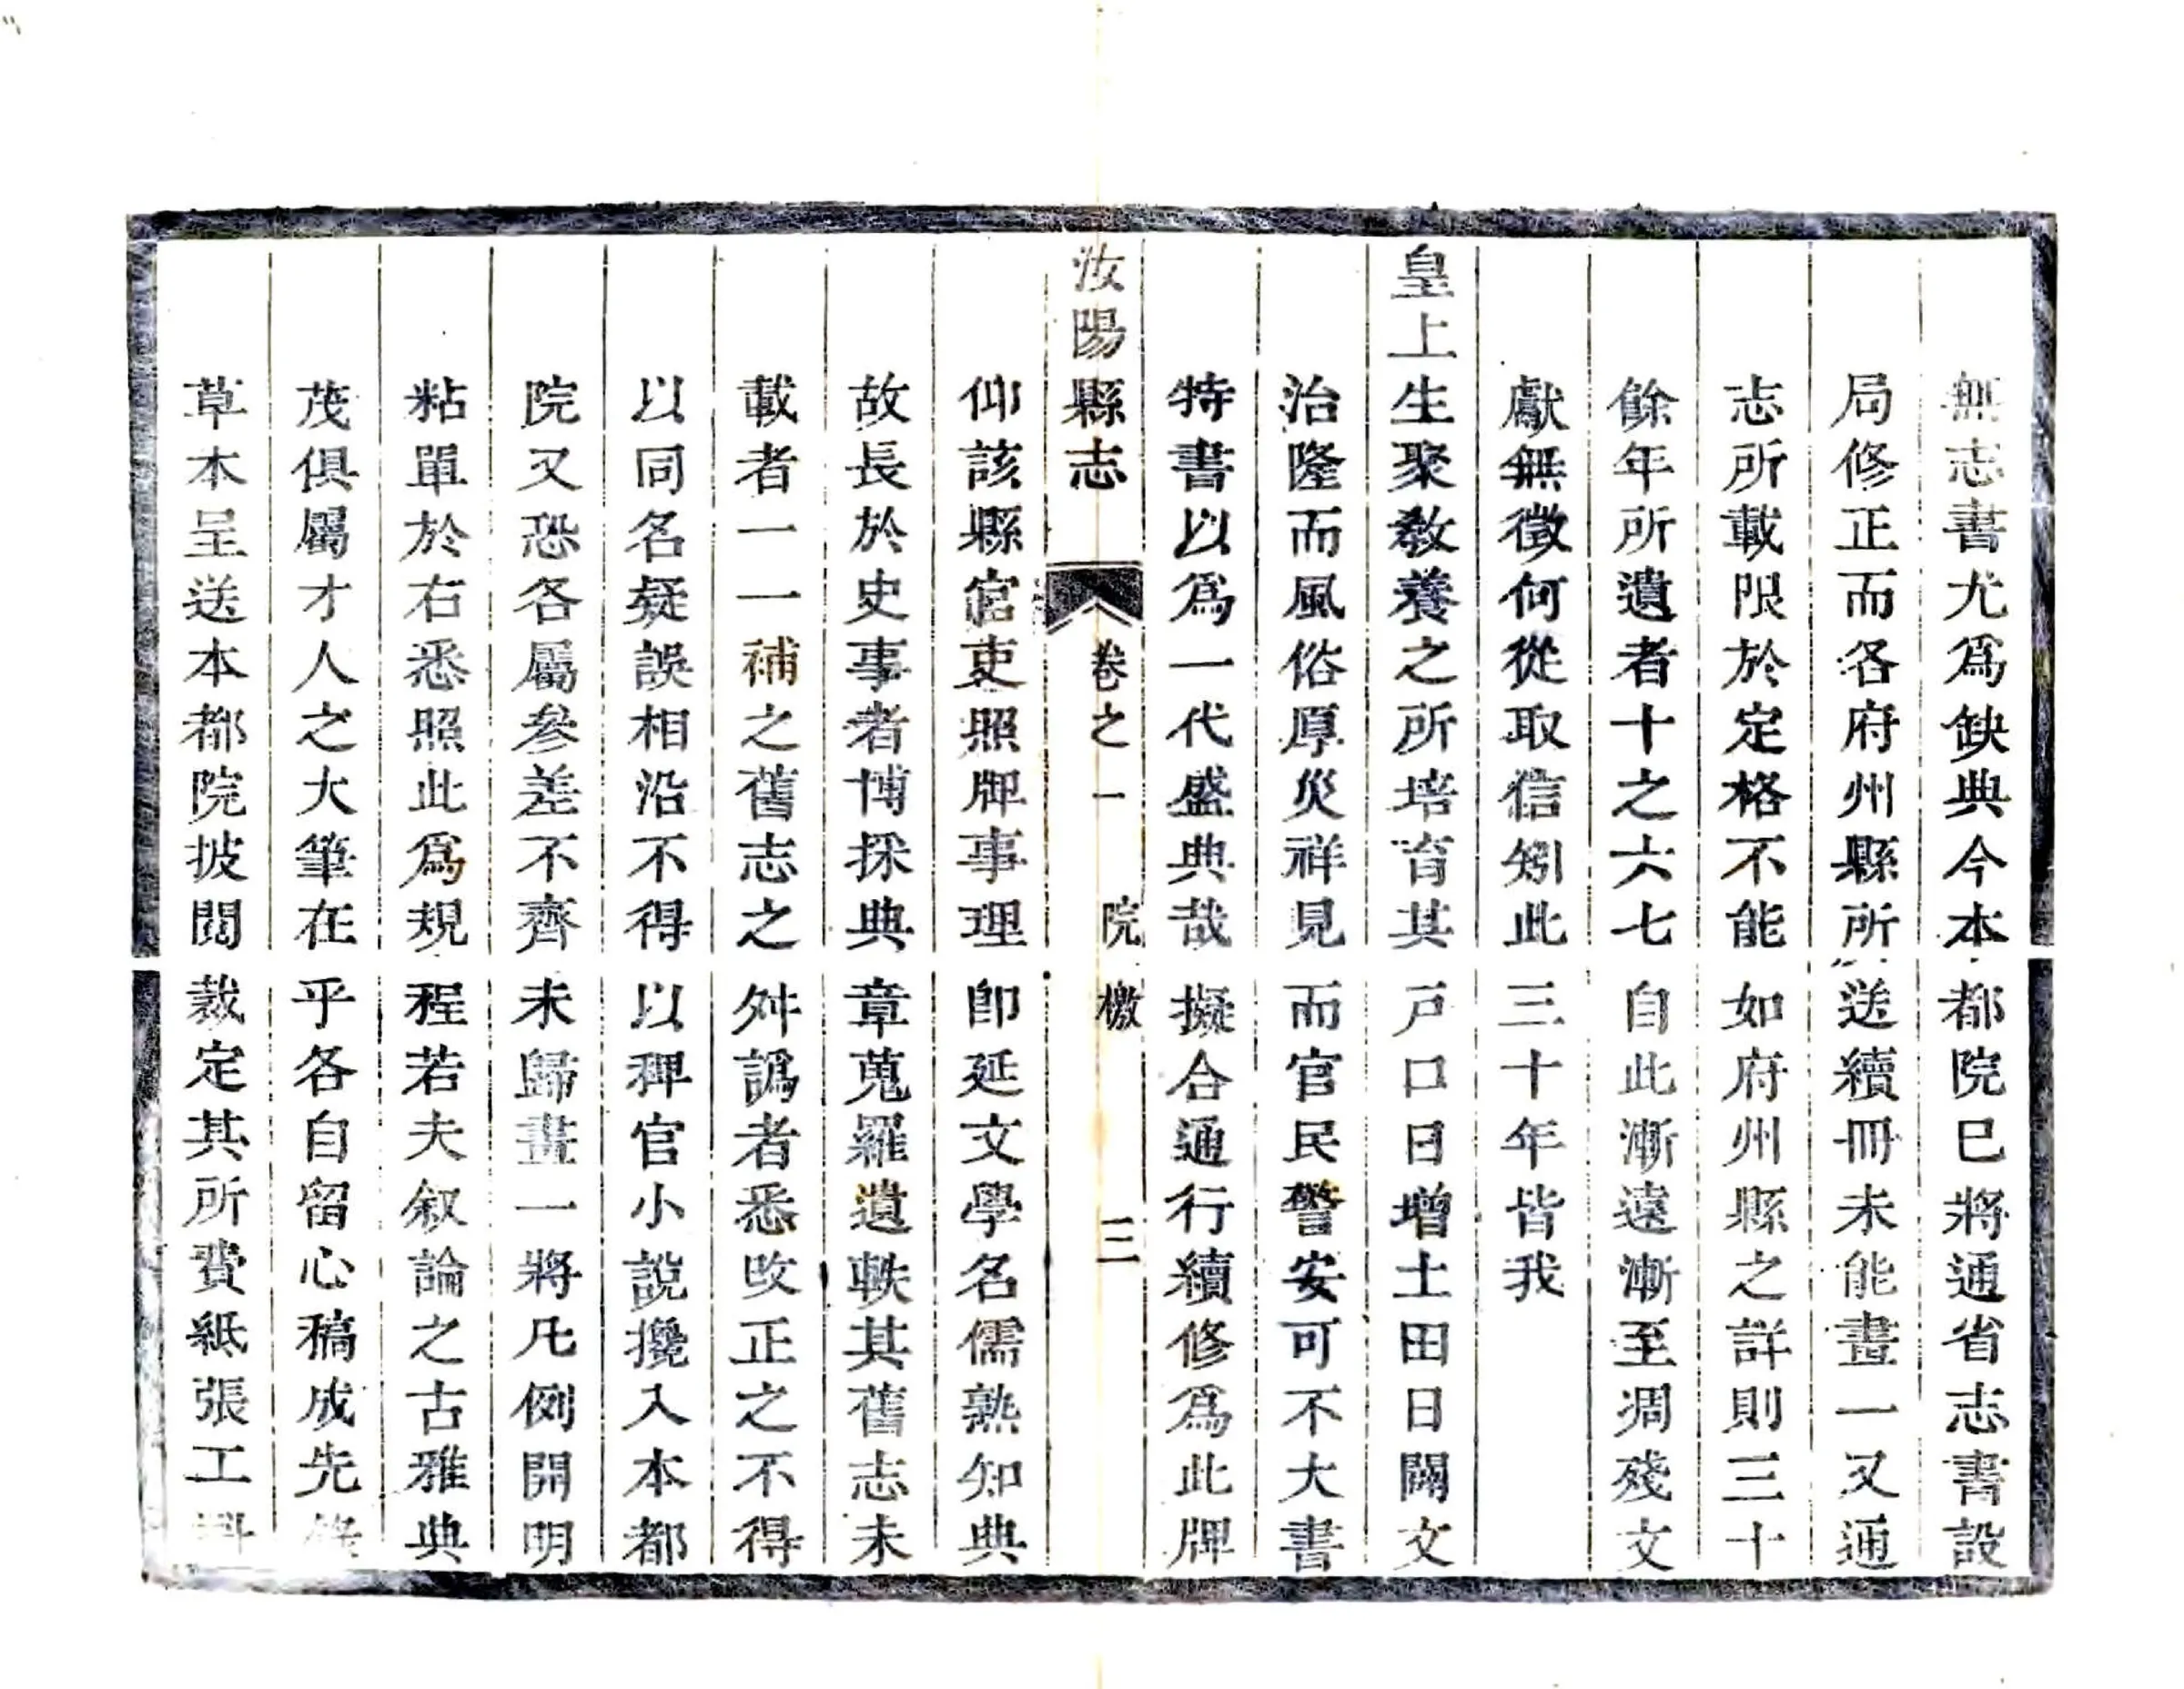 無志書尤爲缺典今本都院已將通省志書設
局修正而各府州縣所送續冊未能畫一又通
志所載限於定格不能如府州縣之詳則三十
餘年所遺者十之六七自此漸遠漸至凋殘文
獻無徵何從取信矧此三十年皆我
皇上生聚教養之所培育其戸口日增土田日闢文
治隆而風俗厚災祥見而官民警安可不大書
特書以爲一代盛典哉擬合通行續修爲此牌
汝陽縣志 卷之一 院檄 三
仰該縣官吏照牌事理卽延文學名儒熟知典
故長於史事者博採典章蒐羅遺軼其舊志未
載者一一補之舊志之舛譌者悉攺正之不得
以同名疑誤相沿不得以稗官小說攙入本都
院又恐各屬參差不齊未歸畫一將凡例開明
粘單於右悉照此爲規程若夫叙論之古雅典
茂俱屬才人之大筆在乎各自留心稿成先
草本呈送本都院披閱裁定其所費紙張工料